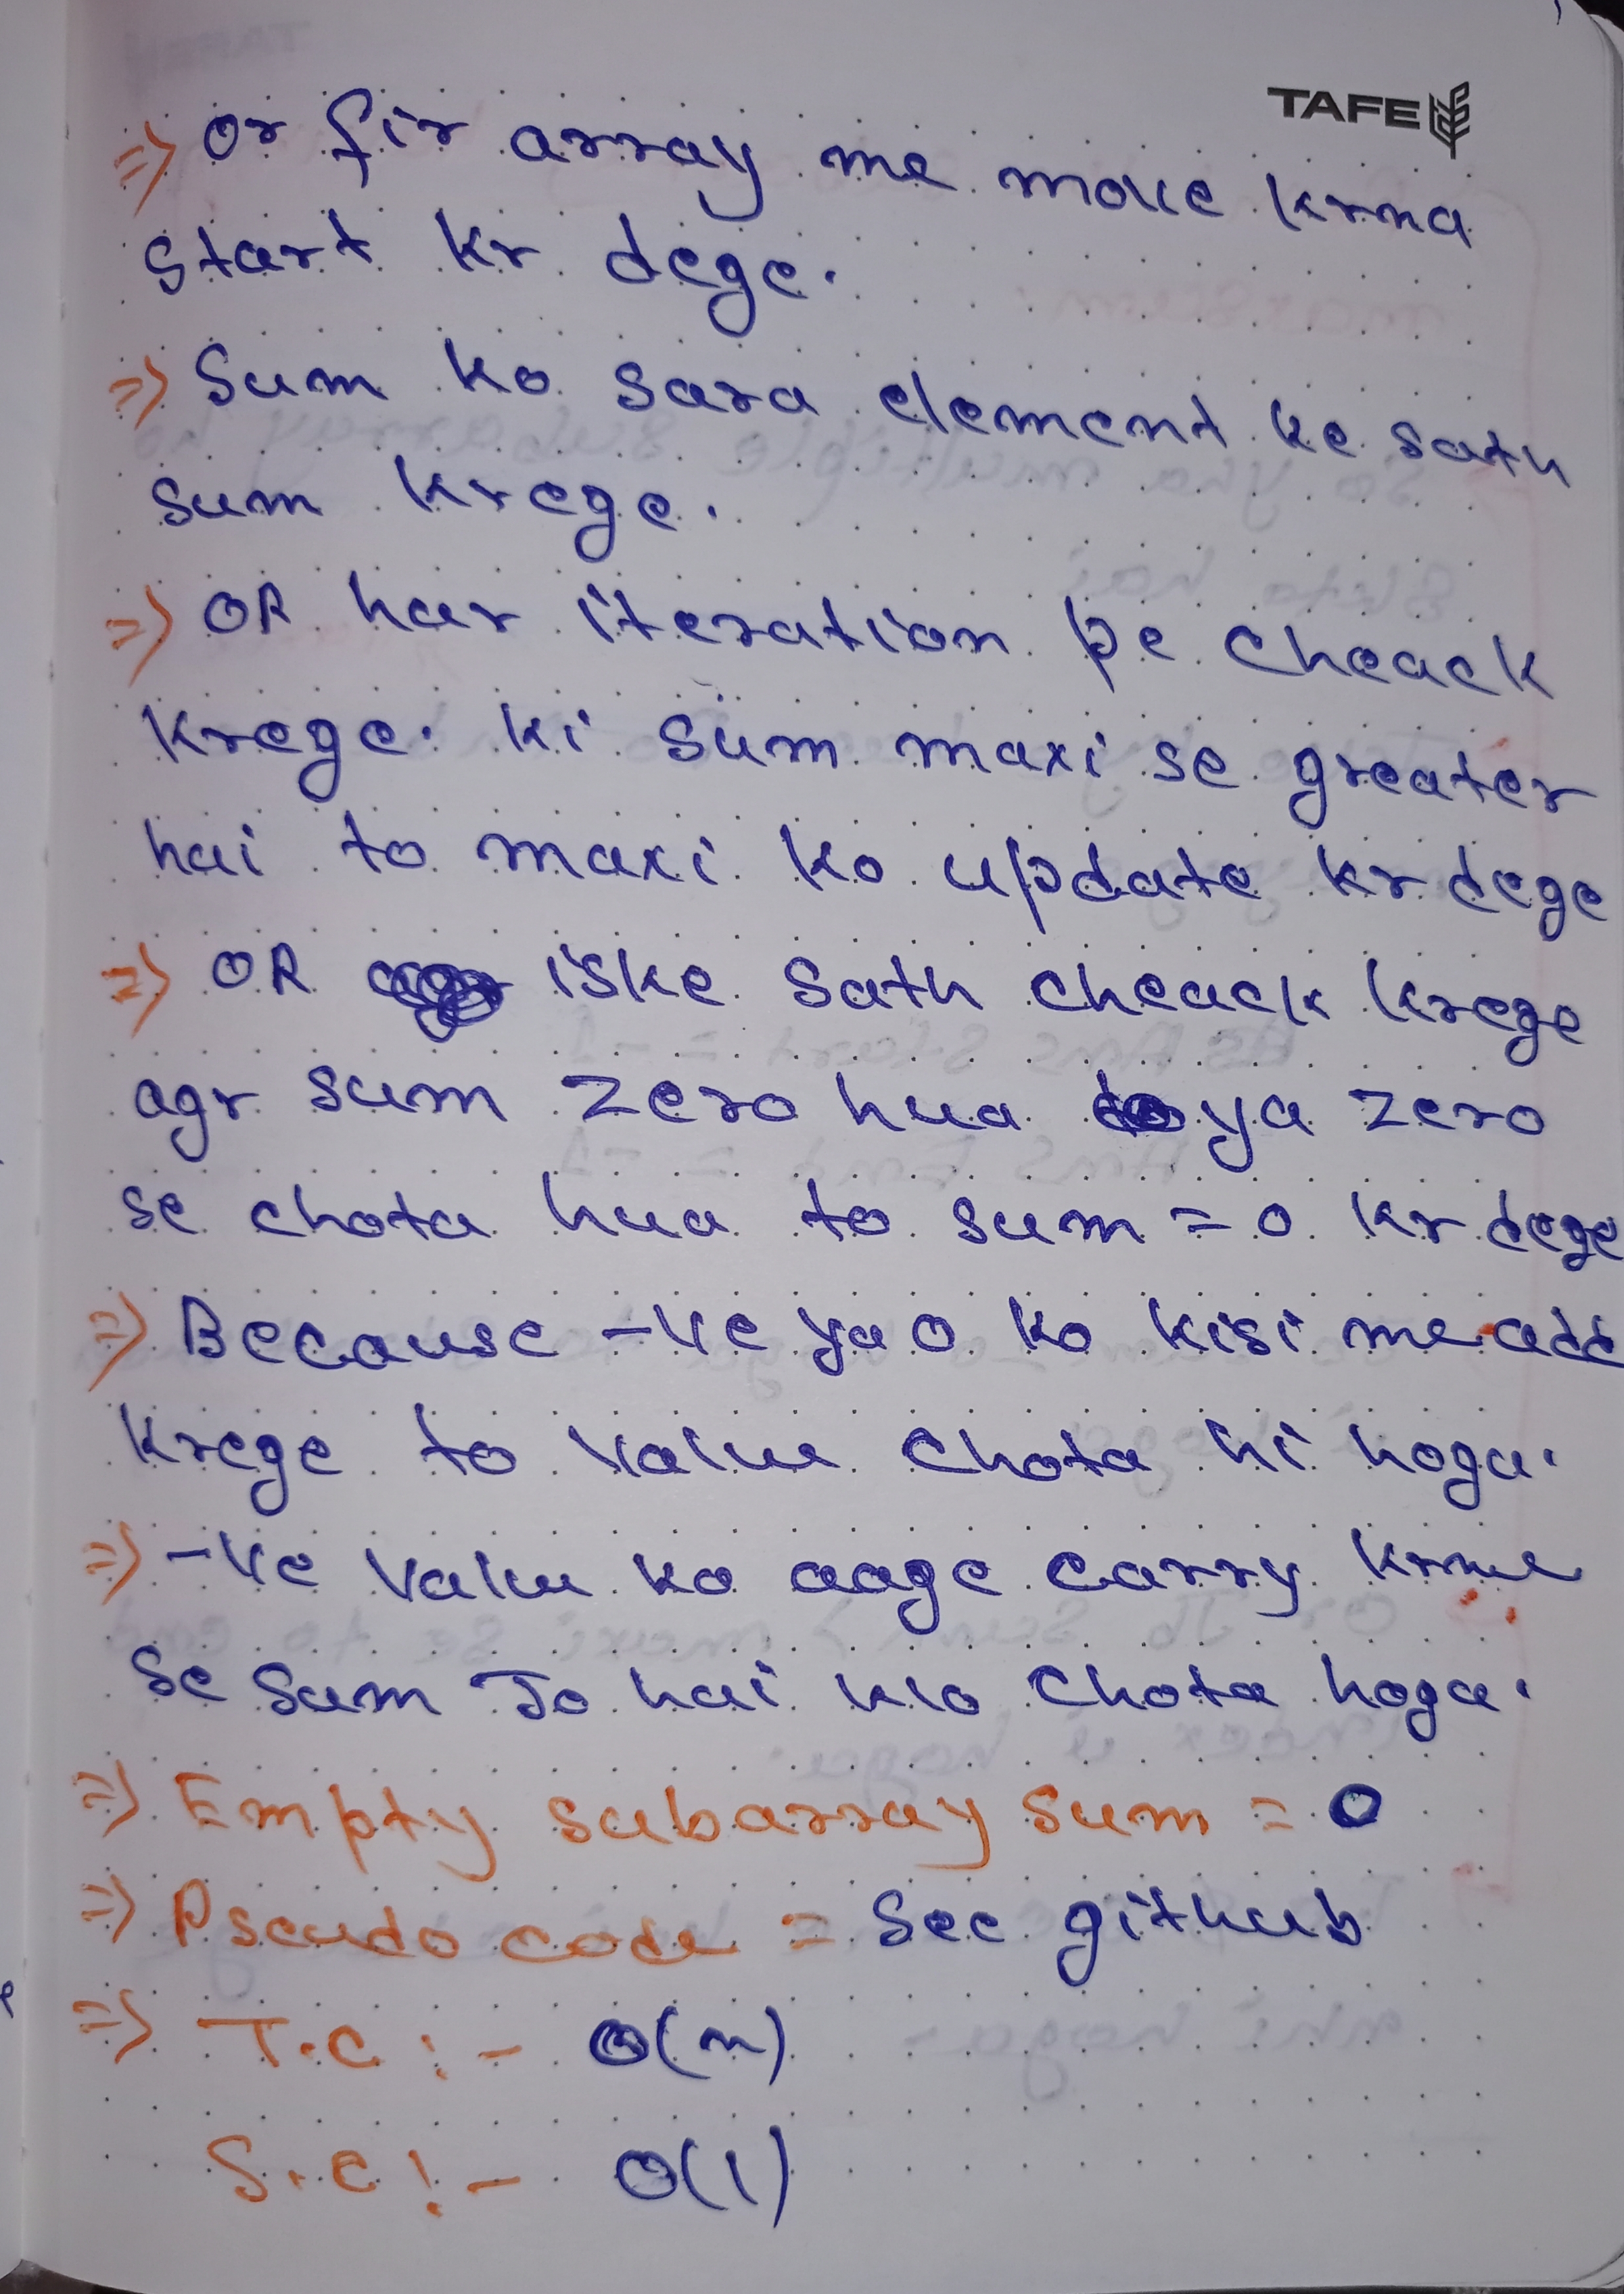 TAFE
=> Or fir array me move krna
start kr dege.
=> Sum ko sara element ke sath
sum krege.
=> OR har iteration pe cheack
krege. ki sum maxi se greater
hai to maxi ko update kr dege
=> OR iske sath cheack krege
agr sum zero hua ya zero
se chota hua to sum = 0 kr dege
=> Because -ve ya 0 ko kisi me add
krege to value chota hi hoga.
=> -ve value ko aage carry krne
se sum Jo hai wo chota hoga.
=> Empty subarray sum = 0
=> Pseudo code = See github
=> T.C :- O(n)
S.C :- O(1)